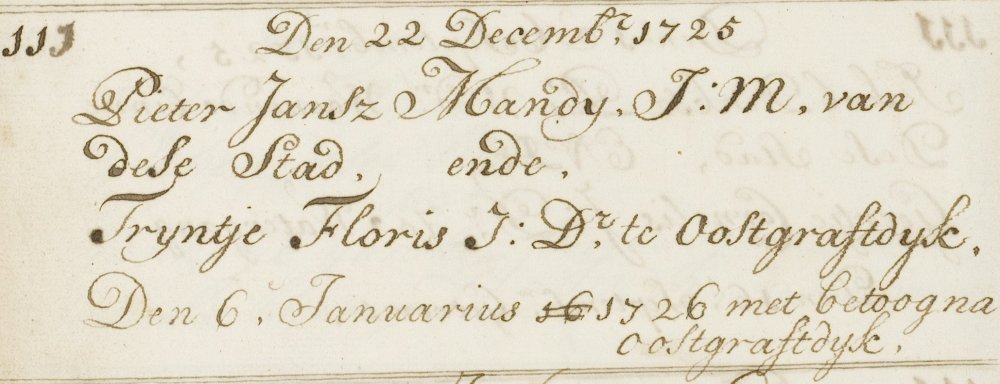 111 Den 22 Decembr. 1725
Pieter Jansz Mandy. J: M. van
dese Stad, ende.
Tryntje Floris J: Dr. te Oostgraftdyk.
Den 6. Januarius 16 1726 met betoogna
oostgraftdyk.